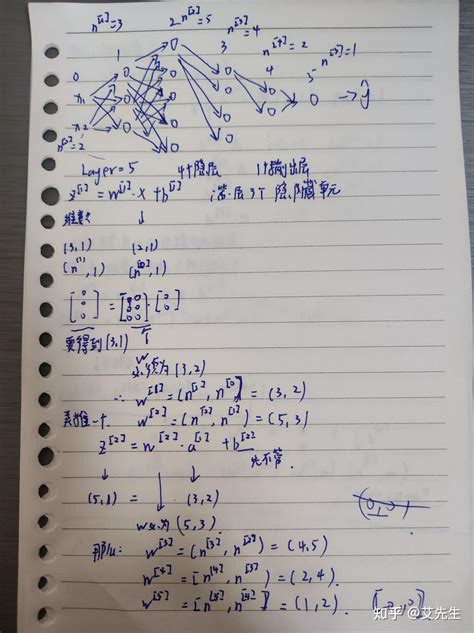 n^[1]=3 2 n^[2]=5 n^[3]=4
1 3 n^[4]=2 n^[5]=1
0 4 5
x₁ → ŷ
x₂
n^[0]=2
Layer=5 4个隐层 1个输出层
z^[1]=w^[1]·x+b^[1] 第一层3个隐藏单元
维数 ↓
(3,1) (2,1)
(n^[1],1) (n^[0],1)
要得到(3,1)
w
必须为(3,2)
∴ w^[1]=(n^[1],n^[0])=(3,2)
w^[2]=(n^[2],n^[1])=(5,3)
z^[2]=w^[2]·a^[1]+b^[2]
先不管.
(5,1) = (3,2)
w必为(5,3)
那么: w^[3]=(n^[3],n^[2])=(4,5)
w^[4]=[n^[4],n^[3]]=(2,4).
w^[5]=[n^[5],n^[4]]=(1,2).
知乎 @艾先生